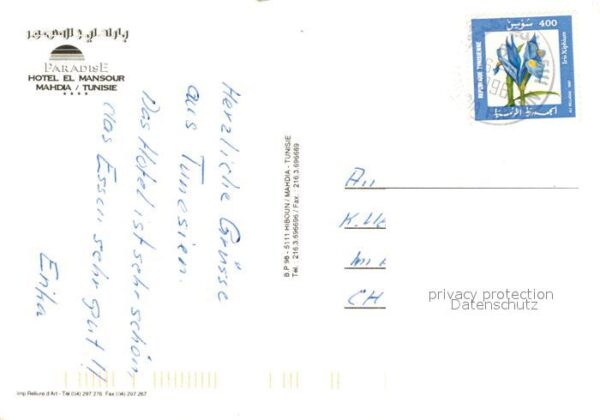 PARADISE
HOTEL EL MANSOUR
MAHDIA / TUNISIE
★★★★
Herzliche Grüsse
aus Tunesien.
Das Hotel ist sehr schön,
das Essen sehr gut !!!
Erika
B.P 98 - 5111 HIBOUN / MAHDIA - TUNISIE
Tél. : 216.3.696696 / Fax. : 216.3.696669
400
REPUBLIQUE TUNISIENNE
Iris Xiphium
الجمهورية التونسية
An
CH
privacy protection
Datenschutz
Imp Reliure d'Art - Tél (04) 297 276 Fax. (04) 297 267